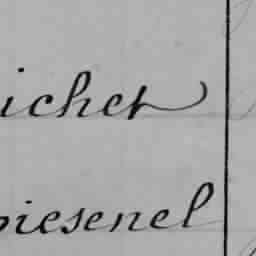 ichet
piesenel